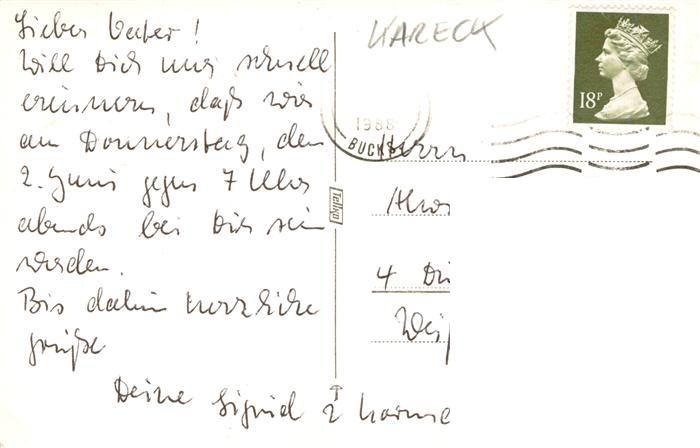 Lieber Vater!
Will Dich nur schnell
erinnern, daß wir
am Donnerstag, den
2. Juni gegen 7 Uhr
abends bei Dir sein
werden.
Bis dahin herzliche
Grüße
Deine Sigrid
KARECK
18P
1988
BUCK
Herrn
4 Dü
Tellga